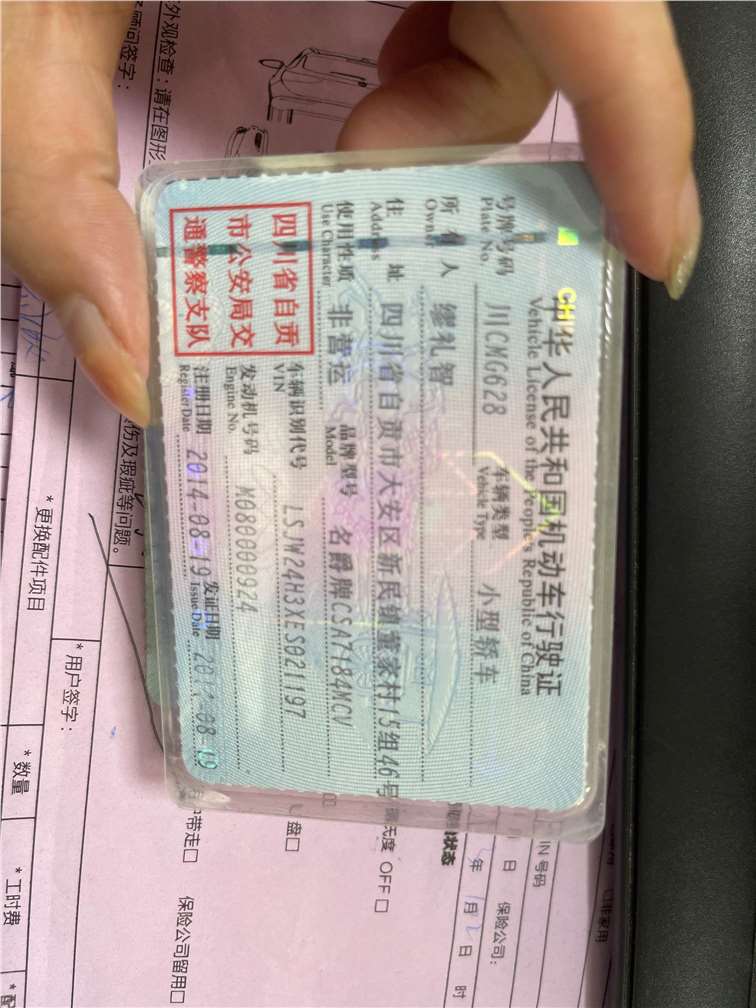 中华人民共和国机动车行驶证
Vehicle License of the People's Republic of China
号牌号码 川CMG628 车辆类型 小型轿车
Plate No. Vehicle Type
所有人 缪礼智
Owner
住址 四川省自贡市大安区新民镇董家村15组46号
Address
使用性质 非营运 品牌型号 名爵牌CSA7184NCV
Use Character Model
车辆识别代号 LSJW24H3XES021197
VIN
发动机号码 M080000924
Engine No.
注册日期 2014-08-19 发证日期
Register Date Issue Date
四川省自贡
市公安局交
通警察支队
外观检查:请在图形
顾问签字:
伤及瑕疵等问题。
*更换配件项目
*用户签字:
*数量
*工时费
带走□ 保险公司留用□
OFF□
年 月 日 时
日 保险公司:
号码